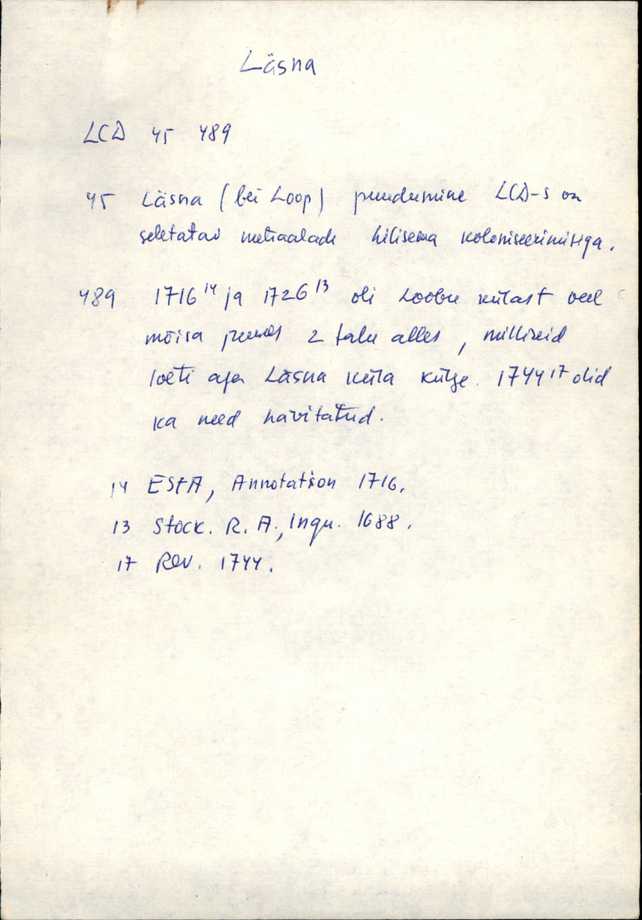 Läsna
LCD 45 489
45 Läsna (bei Loop) puudumine LCD-s on
seletatav metsaalade hilisema koloniseerimisega.
489 1716¹⁴ ja 1726¹³ oli Loobu külast veel
mõisa juures 2 talu alles, milliseid
loeti aga Läsna küla külge. 1744¹⁷ olid
ka need hävitatud.
14 EStA, Annotation 1716.
13 Stock. R. A., Inqu. 1688.
17 Rev. 1744.